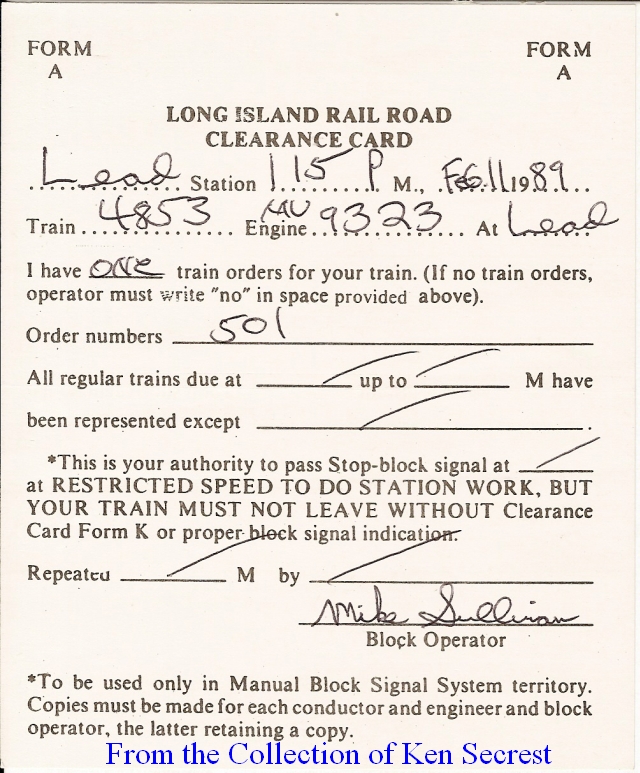 FORM A FORM A
LONG ISLAND RAIL ROAD
CLEARANCE CARD
Lead Station 115 P M., Feb. 11 1989
Train 4853 Engine MU 9323 At Lead
I have one train orders for your train. (If no train orders,
operator must write "no" in space provided above).
Order numbers 501
All regular trains due at ______ up to ______ M have
been represented except ______.
*This is your authority to pass Stop-block signal at ______
at RESTRICTED SPEED TO DO STATION WORK, BUT
YOUR TRAIN MUST NOT LEAVE WITHOUT Clearance
Card Form K or proper block signal indication.
Repeated ______ M by ______
Mike Sullivan
Block Operator
*To be used only in Manual Block Signal System territory.
Copies must be made for each conductor and engineer and block
operator, the latter retaining a copy.
From the Collection of Ken Secrest